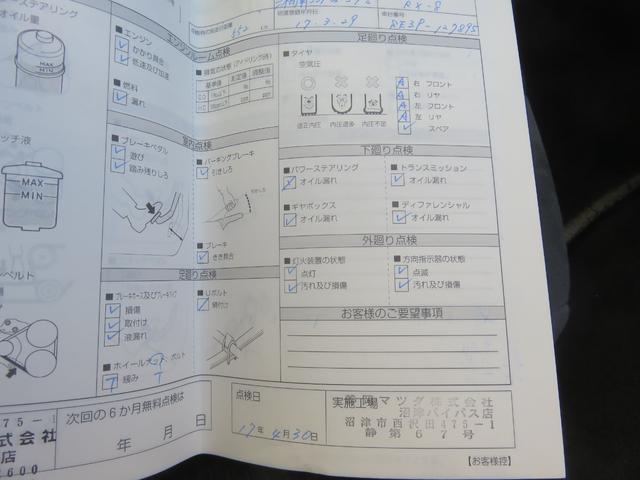 ステアリング
オイル量
MAX
MIN
ッチ液
MAX
MIN
ベルト
エンジンルーム点検
エンジン
かかり具合
低速及び加速
燃料
漏れ
排気の状態(アイドリング時)
基準値 測定値 調整値
CO
HC
室内点検
ブレーキペダル
遊び
踏み残りしろ
パーキングブレーキ
引きしろ
ブレーキ
きき具合
足廻り点検
ブレーキホース及びブレーキパイプ
損傷
取付け
液漏れ
Uボルト
締付け
ホイールナット、ボルト
緩み
RX-8
初度登録年月日
17.3.29
車台番号
SE3P-127895
552
足廻り点検
タイヤ
空気圧
適正内圧 内圧過多 内圧不足
右 フロント
右 リヤ
左 フロント
左 リヤ
スペア
下廻り点検
パワーステアリング
オイル漏れ
トランスミッション
オイル漏れ
ギヤボックス
オイル漏れ
ディファレンシャル
オイル漏れ
外廻り点検
灯火装置の状態
点灯
汚れ及び損傷
方向指示器の状態
点滅
汚れ及び損傷
お客様のご要望事項
次回の6か月無料点検は
年 月 日
点検日
17年 4月30日
実施工場
静岡マツダ株式会社
沼津バイパス店
沼津市西沢田475-1
静第67号
475-1
式会社
店
600
【お客様控】